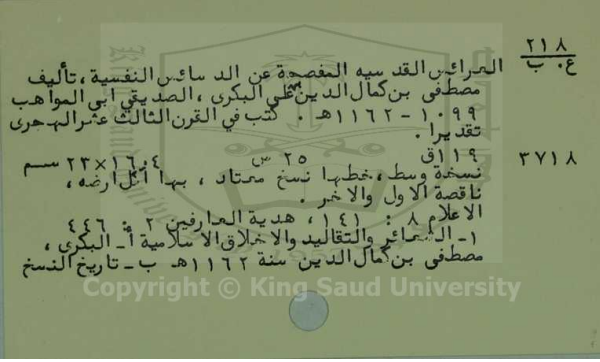 ٢١٨
ع. ب
العرائس القدسيه المفصحة عن الدسائس النفسية، تأليف
مصطفى بن كمال الدين بن علي البكرى، الصديقي ابى المواهب
١٠٩٩ - ١١٦٢هـ. كتب في القرن الثالث عشر الهجرى
تقديرا.
٣٧١٨
١١٩ق ٢٥ س ١٦,٤×٢٣ سم
نسخة وسط، خطها نسخ معتاد، بها اثل ارضه،
ناقصة الاول والاخر.
الاعلام ٨ : ١٤١، هدية العارفين ٢ : ٤٤٦
١- الشعائر والتقاليد والاخلاق الاسلامية أ- البكرى،
مصطفى بن كمال الدين سنة ١١٦٢هـ ب- تاريخ النسخ
Copyright © King Saud University